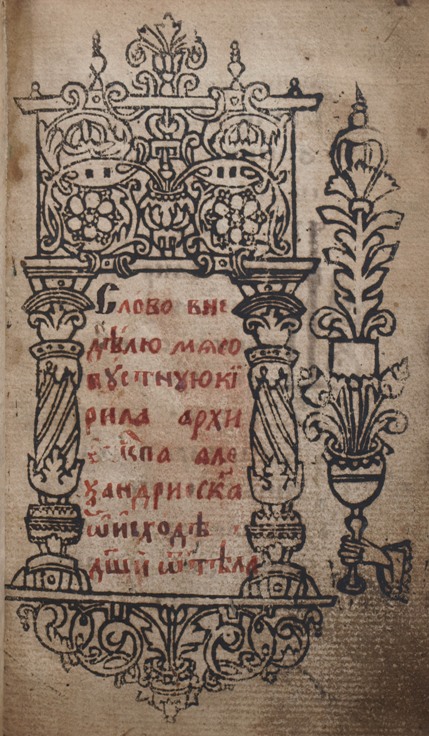 Слово вне
дѣлю мѧсо
пꙋстнꙋюкї
рила архи
але
ѯандрискаⷢ
ѿисходѣ
дш҃и ѿтѣла